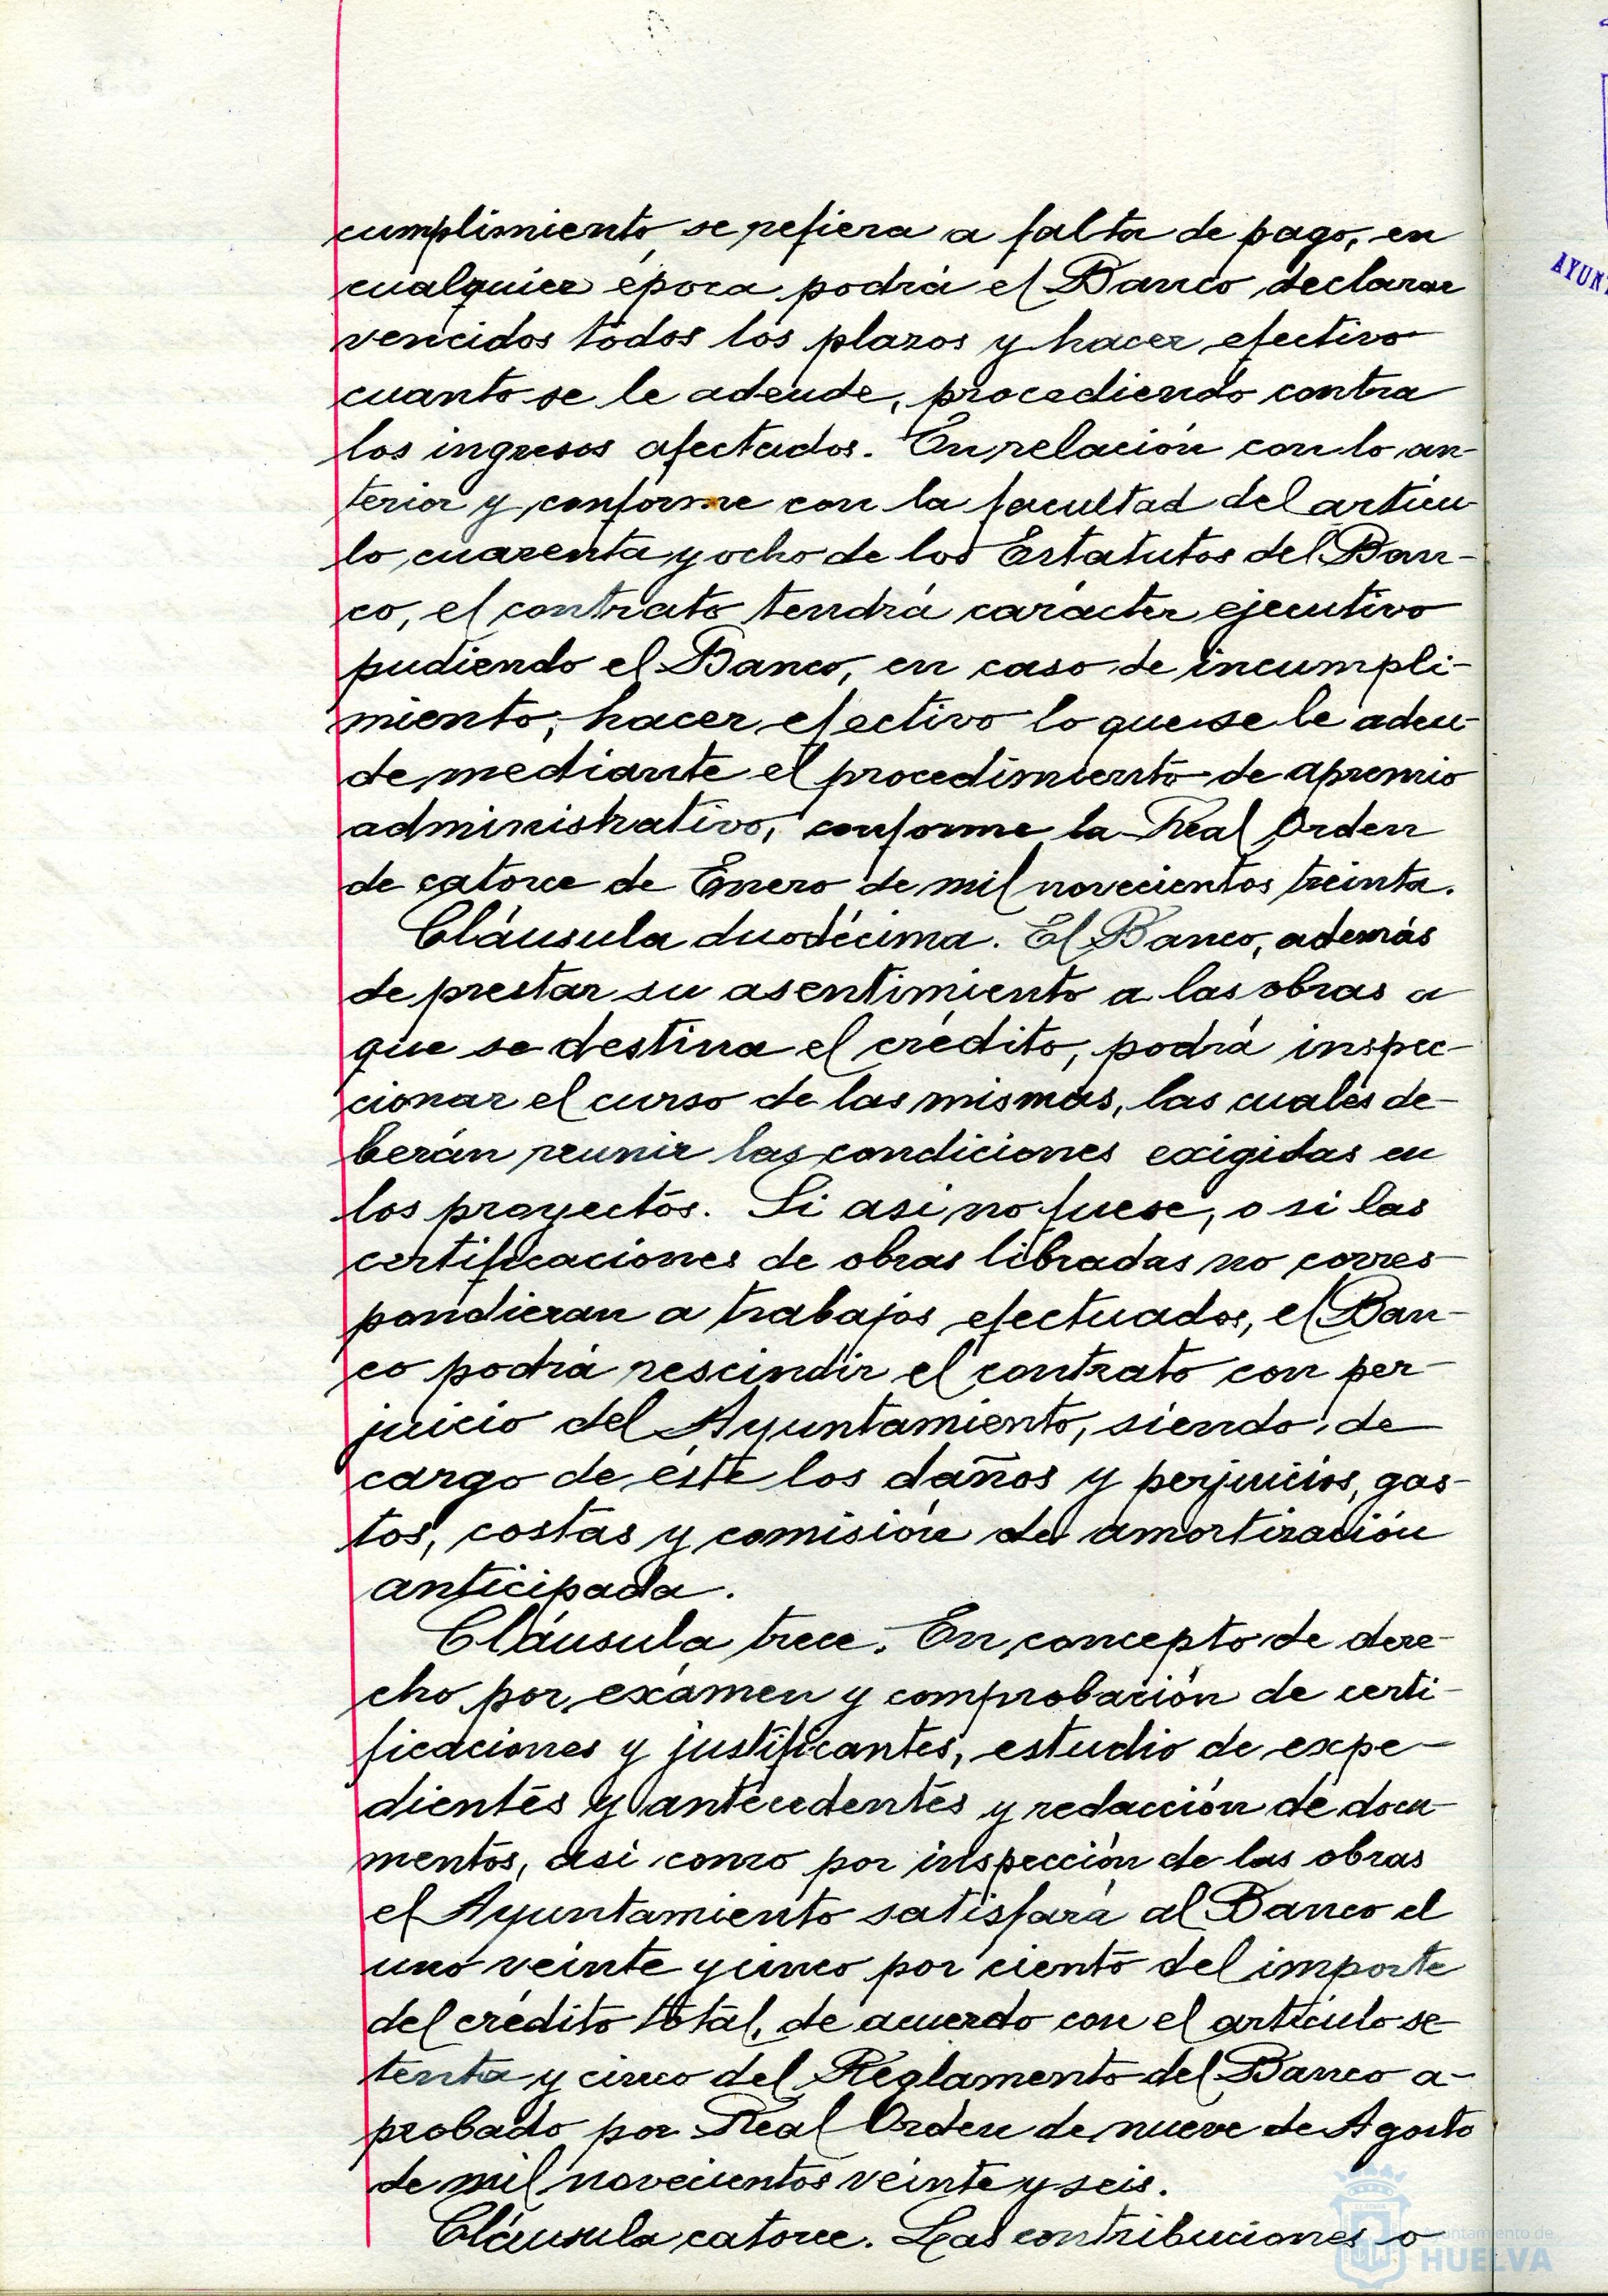 cumplimiento se refiera a falta de pago, en
cualquier época podrá el Banco declarar
vencidos todos los plazos y hacer efectivo
cuanto se le adeude, procediendo contra
los ingresos afectados. En relación con lo an-
terior y conforme con la facultad del artícu-
lo cuarenta y ocho de los Estatutos del Ban-
co, el contrato tendrá carácter ejecutivo
pudiendo el Banco, en caso de incumpli-
miento, hacer efectivo lo que se le adeu-
de mediante el procedimiento de apremio
administrativo, conforme la Real Orden
de catorce de Enero de mil novecientos treinta.
Cláusula duodécima. El Banco, además
de prestar su asentimiento a las obras a
que se destina el crédito, podrá inspec-
cionar el curso de las mismas, las cuales de-
berán reunir las condiciones exigidas en
los proyectos. Si así no fuese, o si las
certificaciones de obras libradas no corres-
pondieran a trabajos efectuados, el Ban-
co podrá rescindir el contrato con per-
juicio del Ayuntamiento, siendo de
cargo de éste los daños y perjuicios, gas-
tos, costas y comisión de amortización
anticipada.
Cláusula trece. En concepto de dere-
cho por exámen y comprobación de certi-
ficaciones y justificantes, estudio de expe-
dientes y antecedentes y redacción de docu-
mentos, asi como por inspección de las obras
el Ayuntamiento satisfará al Banco el
uno veinte y cinco por ciento del importe
del crédito total, de acuerdo con el artículo se-
tenta y cinco del Reglamento del Banco a-
probado por Real Orden de nueve de Agosto
de mil novecientos veinte y seis.
Cláusula catorce. Las contribuciones o
AYUNT
Ayuntamiento de
HUELVA